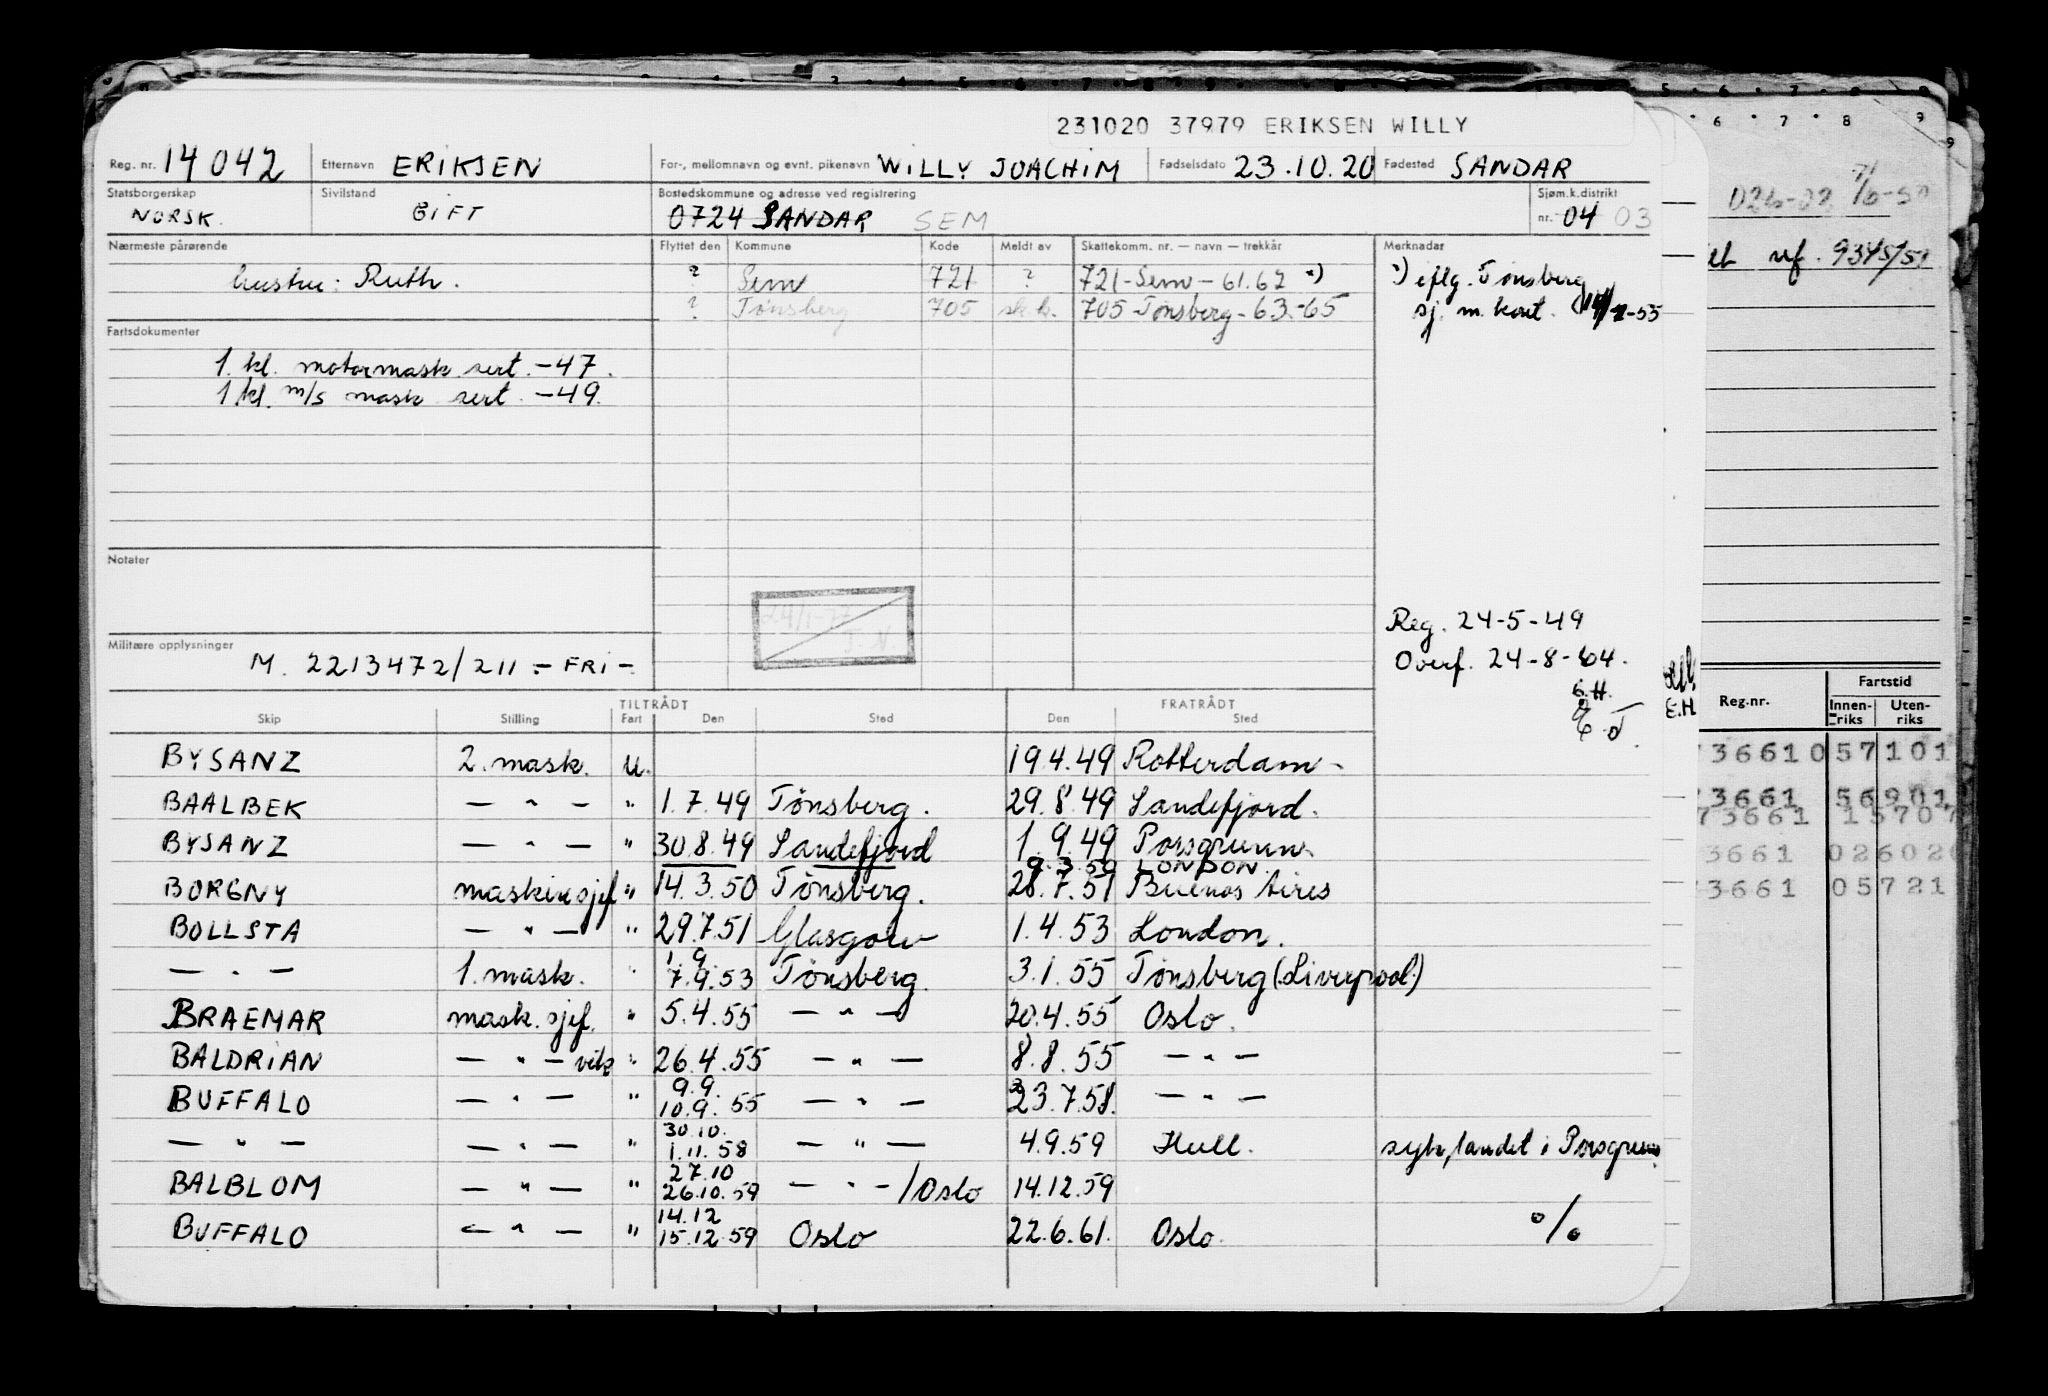 231020 37979 ERIKSEN WILLY
Reg. nr. 14042 Etternavn ERIKSEN For-, mellomnavn og evnt. pikenavn WILLY JOACHIM Fødselsdato 23.10.20 Fødested SANDAR
Statsborgerskap NORSK. Sivilstand GIFT Bostedskommune og adresse ved registrering 0724 SANDAR SEM Sjøm.k.distrikt nr. 04 03
Nærmeste pårørende Flyttet den Kommune Kode Meldt av Skattekomm. nr. — navn — trekkår Merknader
hustru: Ruth. ? Sem 721 ? 721-Sem-61.62 *) *) eflg. Tønsberg
? Tønsberg 705 sk.k. 705 Tønsberg-63-65 sj. m. kont.
Fartsdokumenter
1. kl. motormask. sert. -47.
1 kl. m/s mask sert. -49.
Notater
Reg. 24-5-49
Overf. 24-8-64.
E.H.
Militære opplysninger M. 2213472/211 - FRI -
TILTRÅDT FRATRÅDT
Skip Stilling Fart Den Sted Den Sted
BYSANZ 2. mask. u. 19.4.49 Rotterdam-
BAALBEK — " — " 1.7.49 Tønsberg. 29.8.49 Sandefjord.
BYSANZ — " — " 30.8.49 Sandefjord 1.9.49 Porsgrunn.
9.3.50 LONDON.
BORGNY maskinsjef " 14.3.50 Tønsberg. 28.7.51 Buenos Aires
BOLLSTA — " — " 29.7.51 Glasgow 1.4.53 London.
1.9.
— " — 1. mask. " 7.9.53 Tønsberg. 3.1.55 Tønsberg (Liverpool)
BRAEMAR mask. sjef. " 5.4.55 — " — 20.4.55 Oslo.
BALDRIAN — " — vik " 26.4.55 — " — 8.8.55 — " —
9.9.
BUFFALO — " — " 10.9.55 — " — 23.7.58. — " —
30.10.
— " — — " — " 1.11.58 — " — 4.9.59 Hull. syk, landet i Porsgrunn
27.10
BALBLOM — " — " 26.10.59 — " — /Oslo 14.12.59
14.12
BUFFALO — " — " 15.12.59 Oslo 22.6.61. Oslo. o/o
nf. 9345/
Reg.nr. Fartstid
Innenriks Utenriks
736610 57101
3661 56901
73661 15707
3661 02602
3661 05721